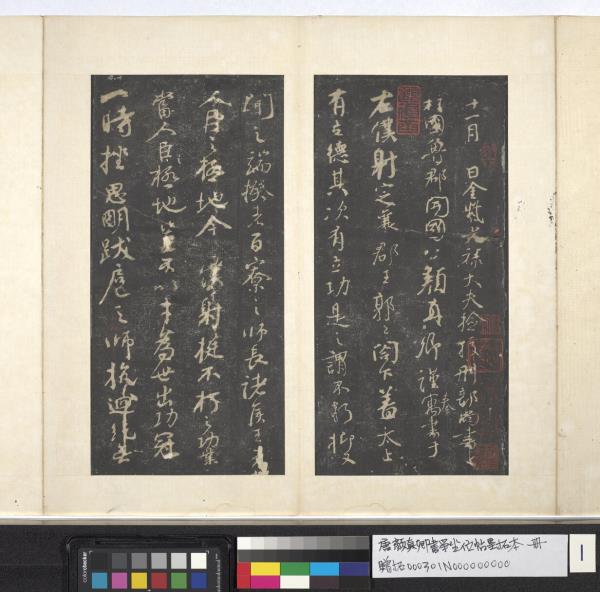 十一月 日金紫光祿大夫檢挍刑部尚書上
柱國魯郡開國公顏真卿謹奉寓書于
右僕射定襄郡王郭公閤下蓋太上
有立德其次有立功是之謂不朽抑又
聞之端揆者百寮之師長諸侯王者
人臣之極地今僕射挺不朽之功業
當人臣極地豈不以才為世出功冠
一時挫思明跋扈之師抗迴紇無
唐顏真卿書爭坐位帖墨拓本 一冊
贈拓000301N000000000
1
colorchecker